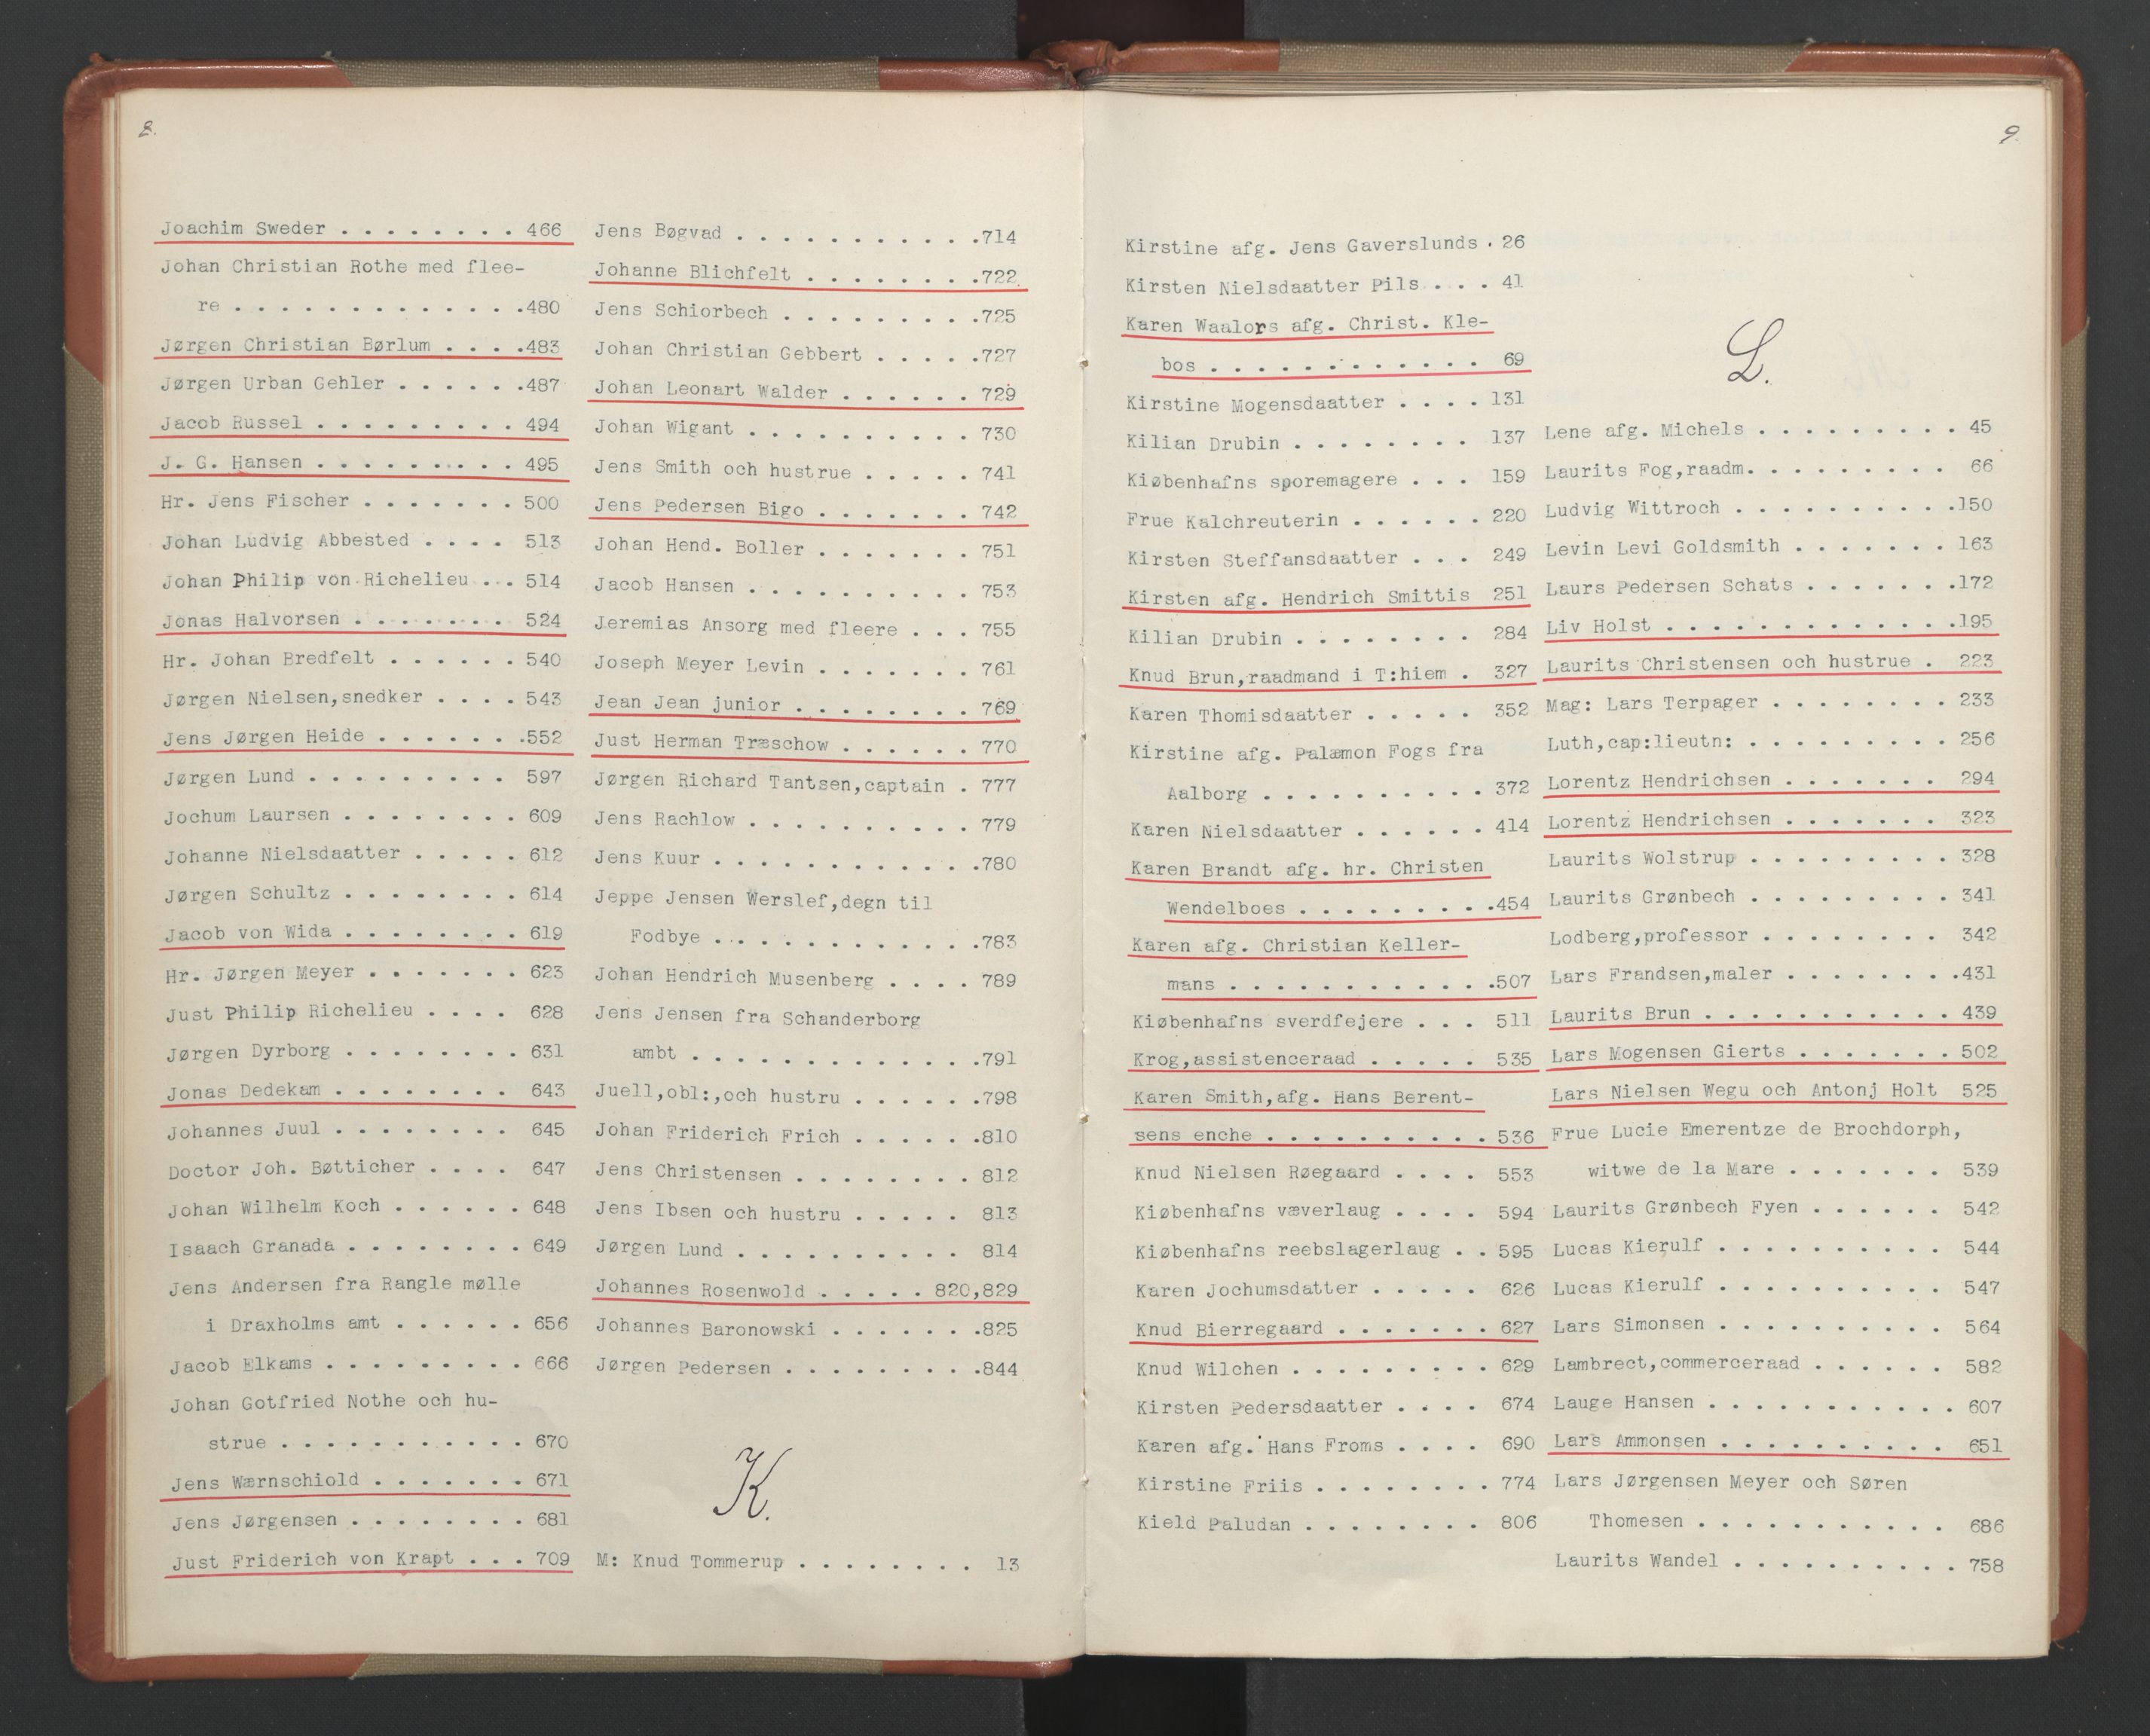 8.
Joachim Sweder . . . . . . . . 466
Johan Christian Rothe med flee-
re . . . . . . . . . . . . .480
Jørgen Christian Børlum . . . .483
Jørgen Urban Gehler . . . . . .487
Jacob Russel . . . . . . . . . 494
J. G. Hansen . . . . . . . . . 495
Hr. Jens Fischer . . . . . . . 500
Johan Ludvig Abbested . . . . 513
Johan Philip von Richelieu . . . 514
Jonas Halvorsen . . . . . . . . 524
Hr. Johan Bredfelt . . . . . . 540
Jørgen Nielsen,snedker . . . . 543
Jens Jørgen Heide . . . . . . .552
Jørgen Lund . . . . . . . . . 597
Jochum Laursen . . . . . . . . 609
Johanne Nielsdaatter . . . . . 612
Jørgen Schultz . . . . . . . . 614
Jacob von Wida . . . . . . . . 619
Hr. Jørgen Meyer . . . . . . . 623
Just Philip Richelieu . . . . 628
Jørgen Dyrborg . . . . . . . . 631
Jonas Dedekam . . . . . . . . 643
Johannes Juul . . . . . . . . 645
Doctor Joh. Bøtticher . . . . 647
Johan Wilhelm Koch . . . . . . 648
Isaach Granada . . . . . . . . 649
Jens Andersen fra Rangle mølle
i Draxholms amt . . . . . . 656
Jacob Elkams . . . . . . . . . 666
Johan Gotfried Nothe och hu-
strue . . . . . . . . . . . 670
Jens Wærnschiold . . . . . . . 671
Jens Jørgensen . . . . . . . . 681
Just Friderich von Krapt . . . 709
Jens Bøgvad . . . . . . . . . . .714
Johanne Blichfelt . . . . . . . .722
Jens Schiorbech . . . . . . . . .725
Johan Christian Gebbert . . . . .727
Johan Leonart Walder . . . . . . 729
Johan Wigant . . . . . . . . . . 730
Jens Smith och hustrue . . . . . 741
Jens Pedersen Bigo . . . . . . . 742
Johan Hend. Boller . . . . . . . 751
Jacob Hansen . . . . . . . . . . 753
Jeremias Ansorg med fleere . . . 755
Joseph Meyer Levin . . . . . . . 761
Jean Jean junior . . . . . . . . 769
Just Herman Træschow . . . . . . 770
Jørgen Richard Tantsen,captain . 777
Jens Rachlow . . . . . . . . . . 779
Jens Kuur . . . . . . . . . . . .780
Jeppe Jensen Werslef,degn til
Fodbye . . . . . . . . . . . . .783
Johan Hendrich Musenberg . . . . 789
Jens Jensen fra Schanderborg
ambt . . . . . . . . . . . . .791
Juell,obl:,och hustru . . . . . .798
Johan Friderich Frich . . . . . .810
Jens Christensen . . . . . . . . 812
Jens Ibsen och hustru . . . . . 813
Jørgen Lund . . . . . . . . . . 814
Johannes Rosenwold . . . . . 820,829
Johannes Baronowski . . . . . . .825
Jørgen Pedersen . . . . . . . . .844
K.
M: Knud Tommerup . . . . . . . . 13
9.
Kirstine afg. Jens Gaverslunds . 26
Kirsten Nielsdaatter Pils . . . 41
Karen Waalors afg. Christ. Kle-
bos . . . . . . . . . . . . 69
Kirstine Mogensdaatter . . . . 131
Kilian Drubin . . . . . . . . 137
Kiøbenhafns sporemagere . . . 159
Frue Kalchreuterin . . . . . . 220
Kirsten Steffansdaatter . . . 249
Kirsten afg. Hendrich Smittis 251
Kilian Drubin . . . . . . . . 284
Knud Brun,raadmand i T:hiem . 327
Karen Thomisdaatter . . . . . 352
Kirstine afg. Palæmon Fogs fra
Aalborg . . . . . . . . . . 372
Karen Nielsdaatter . . . . . . 414
Karen Brandt afg. hr. Christen
Wendelboes . . . . . . . . .454
Karen afg. Christian Keller-
mans . . . . . . . . . . . .507
Kiøbenhafns sverdfejere . . . 511
Krog,assistenceraad . . . . . 535
Karen Smith,afg. Hans Berent-
sens enche . . . . . . . . . . 536
Knud Nielsen Røegaard . . . . 553
Kiøbenhafns væverlaug . . . . 594
Kiøbenhafns reebslagerlaug . . 595
Karen Jochumsdatter . . . . . 626
Knud Bierregaard . . . . . . . 627
Knud Wilchen . . . . . . . . . 629
Kirsten Pedersdaatter . . . . 674
Karen afg. Hans Froms . . . . 690
Kirstine Friis . . . . . . . . 774
Kield Paludan . . . . . . . . 806
L.
Lene afg. Michels . . . . . . . . . 45
Laurits Fog,raadm. . . . . . . . . 66
Ludvig Wittroch . . . . . . . . . .150
Levin Levi Goldsmith . . . . . . . 163
Laurs Pedersen Schats . . . . . . .172
Liv Holst . . . . . . . . . . . . .195
Laurits Christensen och hustrue . 223
Mag: Lars Terpager . . . . . . . . 233
Luth,cap:lieutn: . . . . . . . . . 256
Lorentz Hendrichsen . . . . . . . 294
Lorentz Hendrichsen . . . . . . . 323
Laurits Wolstrup . . . . . . . . . 328
Laurits Grønbech . . . . . . . . . 341
Lodberg,professor . . . . . . . . 342
Lars Frandsen,maler . . . . . . . .431
Laurits Brun . . . . . . . . . . . 439
Lars Mogensen Gierts . . . . . . . 502
Lars Nielsen Wegu och Antonj Holt 525
Frue Lucie Emerentze de Brochdorph,
witwe de la Mare . . . . . . . 539
Laurits Grønbech Fyen . . . . . . 542
Lucas Kierulf . . . . . . . . . . 544
Lucas Kierulf . . . . . . . . . . 547
Lars Simonsen . . . . . . . . . . 564
Lambrect,commerceraad . . . . . . 582
Lauge Hansen . . . . . . . . . . . 607
Lars Ammonsen . . . . . . . . . . 651
Lars Jørgensen Meyer och Søren
Thomesen . . . . . . . . . . . 686
Laurits Wandel . . . . . . . . . . 758